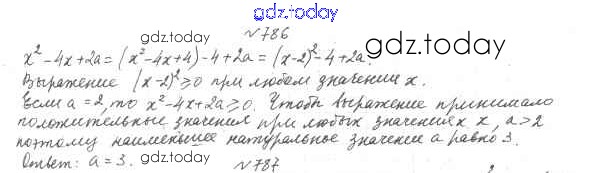 gdz.today
№786
x² - 4x + 2a = (x² - 4x + 4) - 4 + 2a = (x - 2)² - 4 + 2a.
gdz.today
Выражение (x - 2)² ⩾ 0 при любом значении x.
Если a = 2, то x² - 4x + 2a ⩾ 0. Чтобы выражение принимало
положительные значения при любых значениях x, a > 2
поэтому наименьшее натуральное значение a равно 3.
Ответ: a = 3.
gdz.today
gdz.today
№787